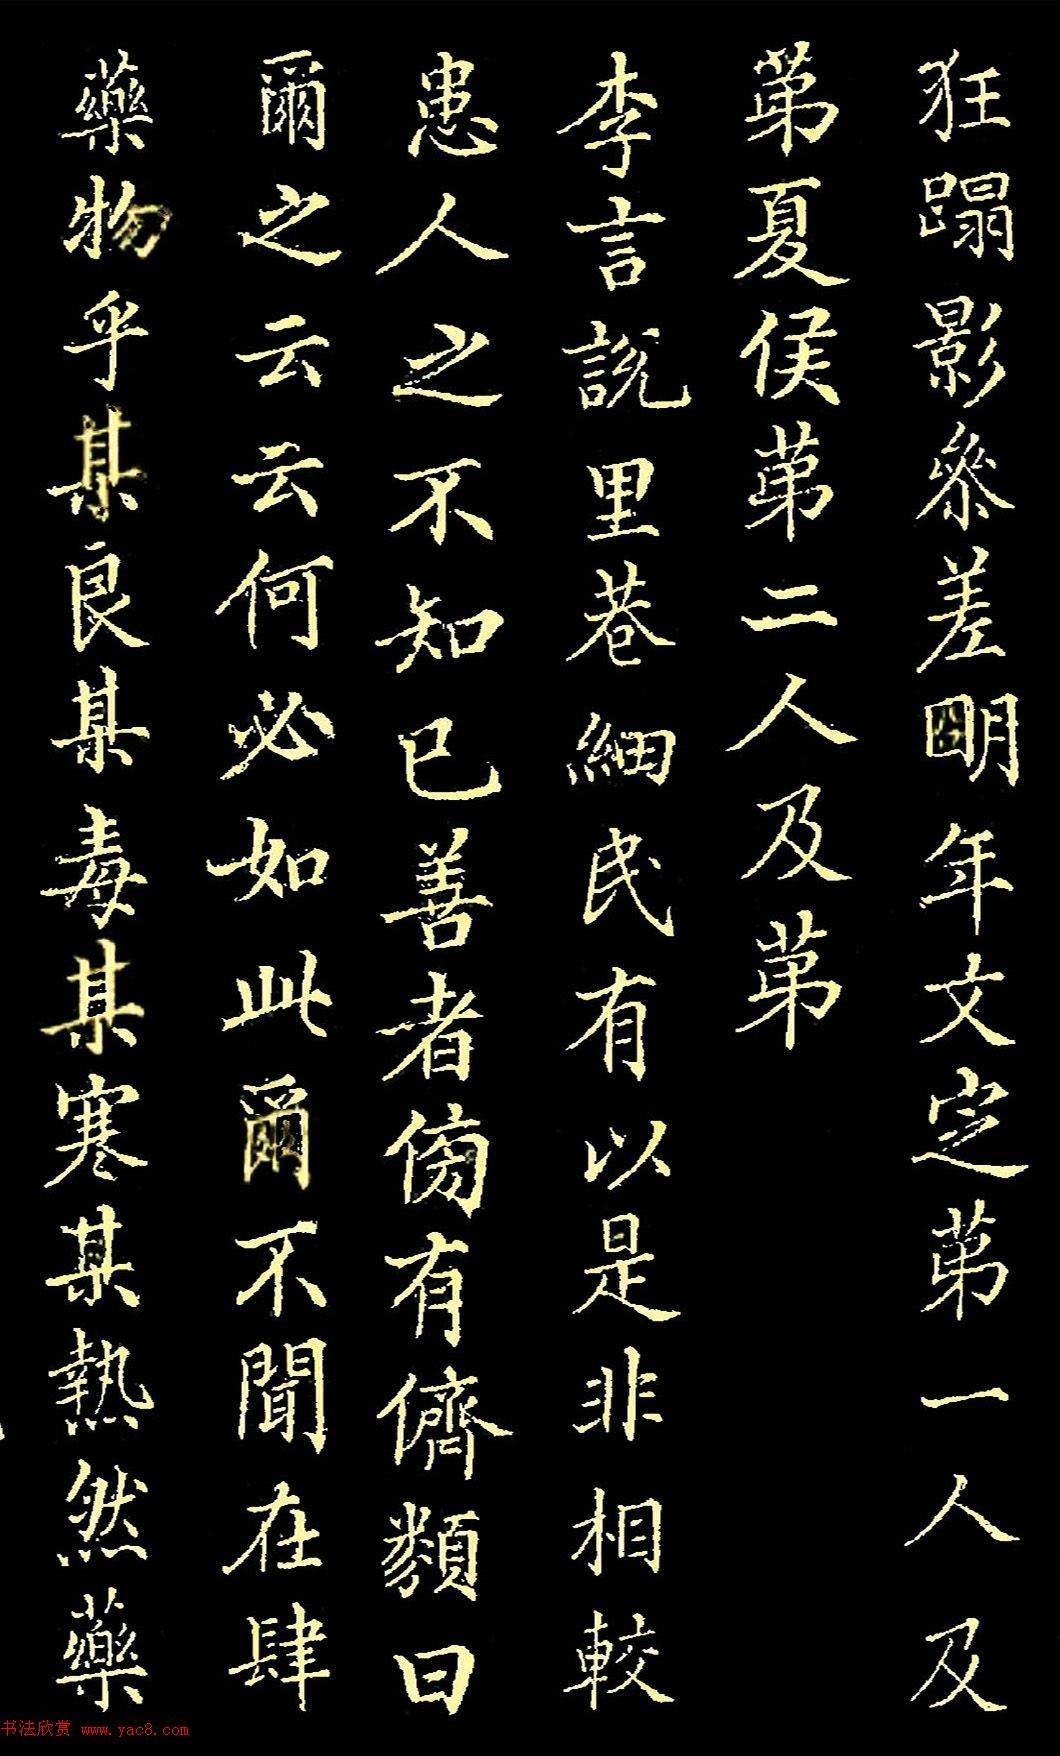 狂蹋影參差明年文定苐一人及
苐夏侯苐二人及苐
李言說里巷細民有以是非相較
患人之不知已善者傍有儕類曰
爾之云云何必如此爾不聞在肆
藥物乎某良某毒某寒某熱然藥
书法欣赏 www.yac8.com